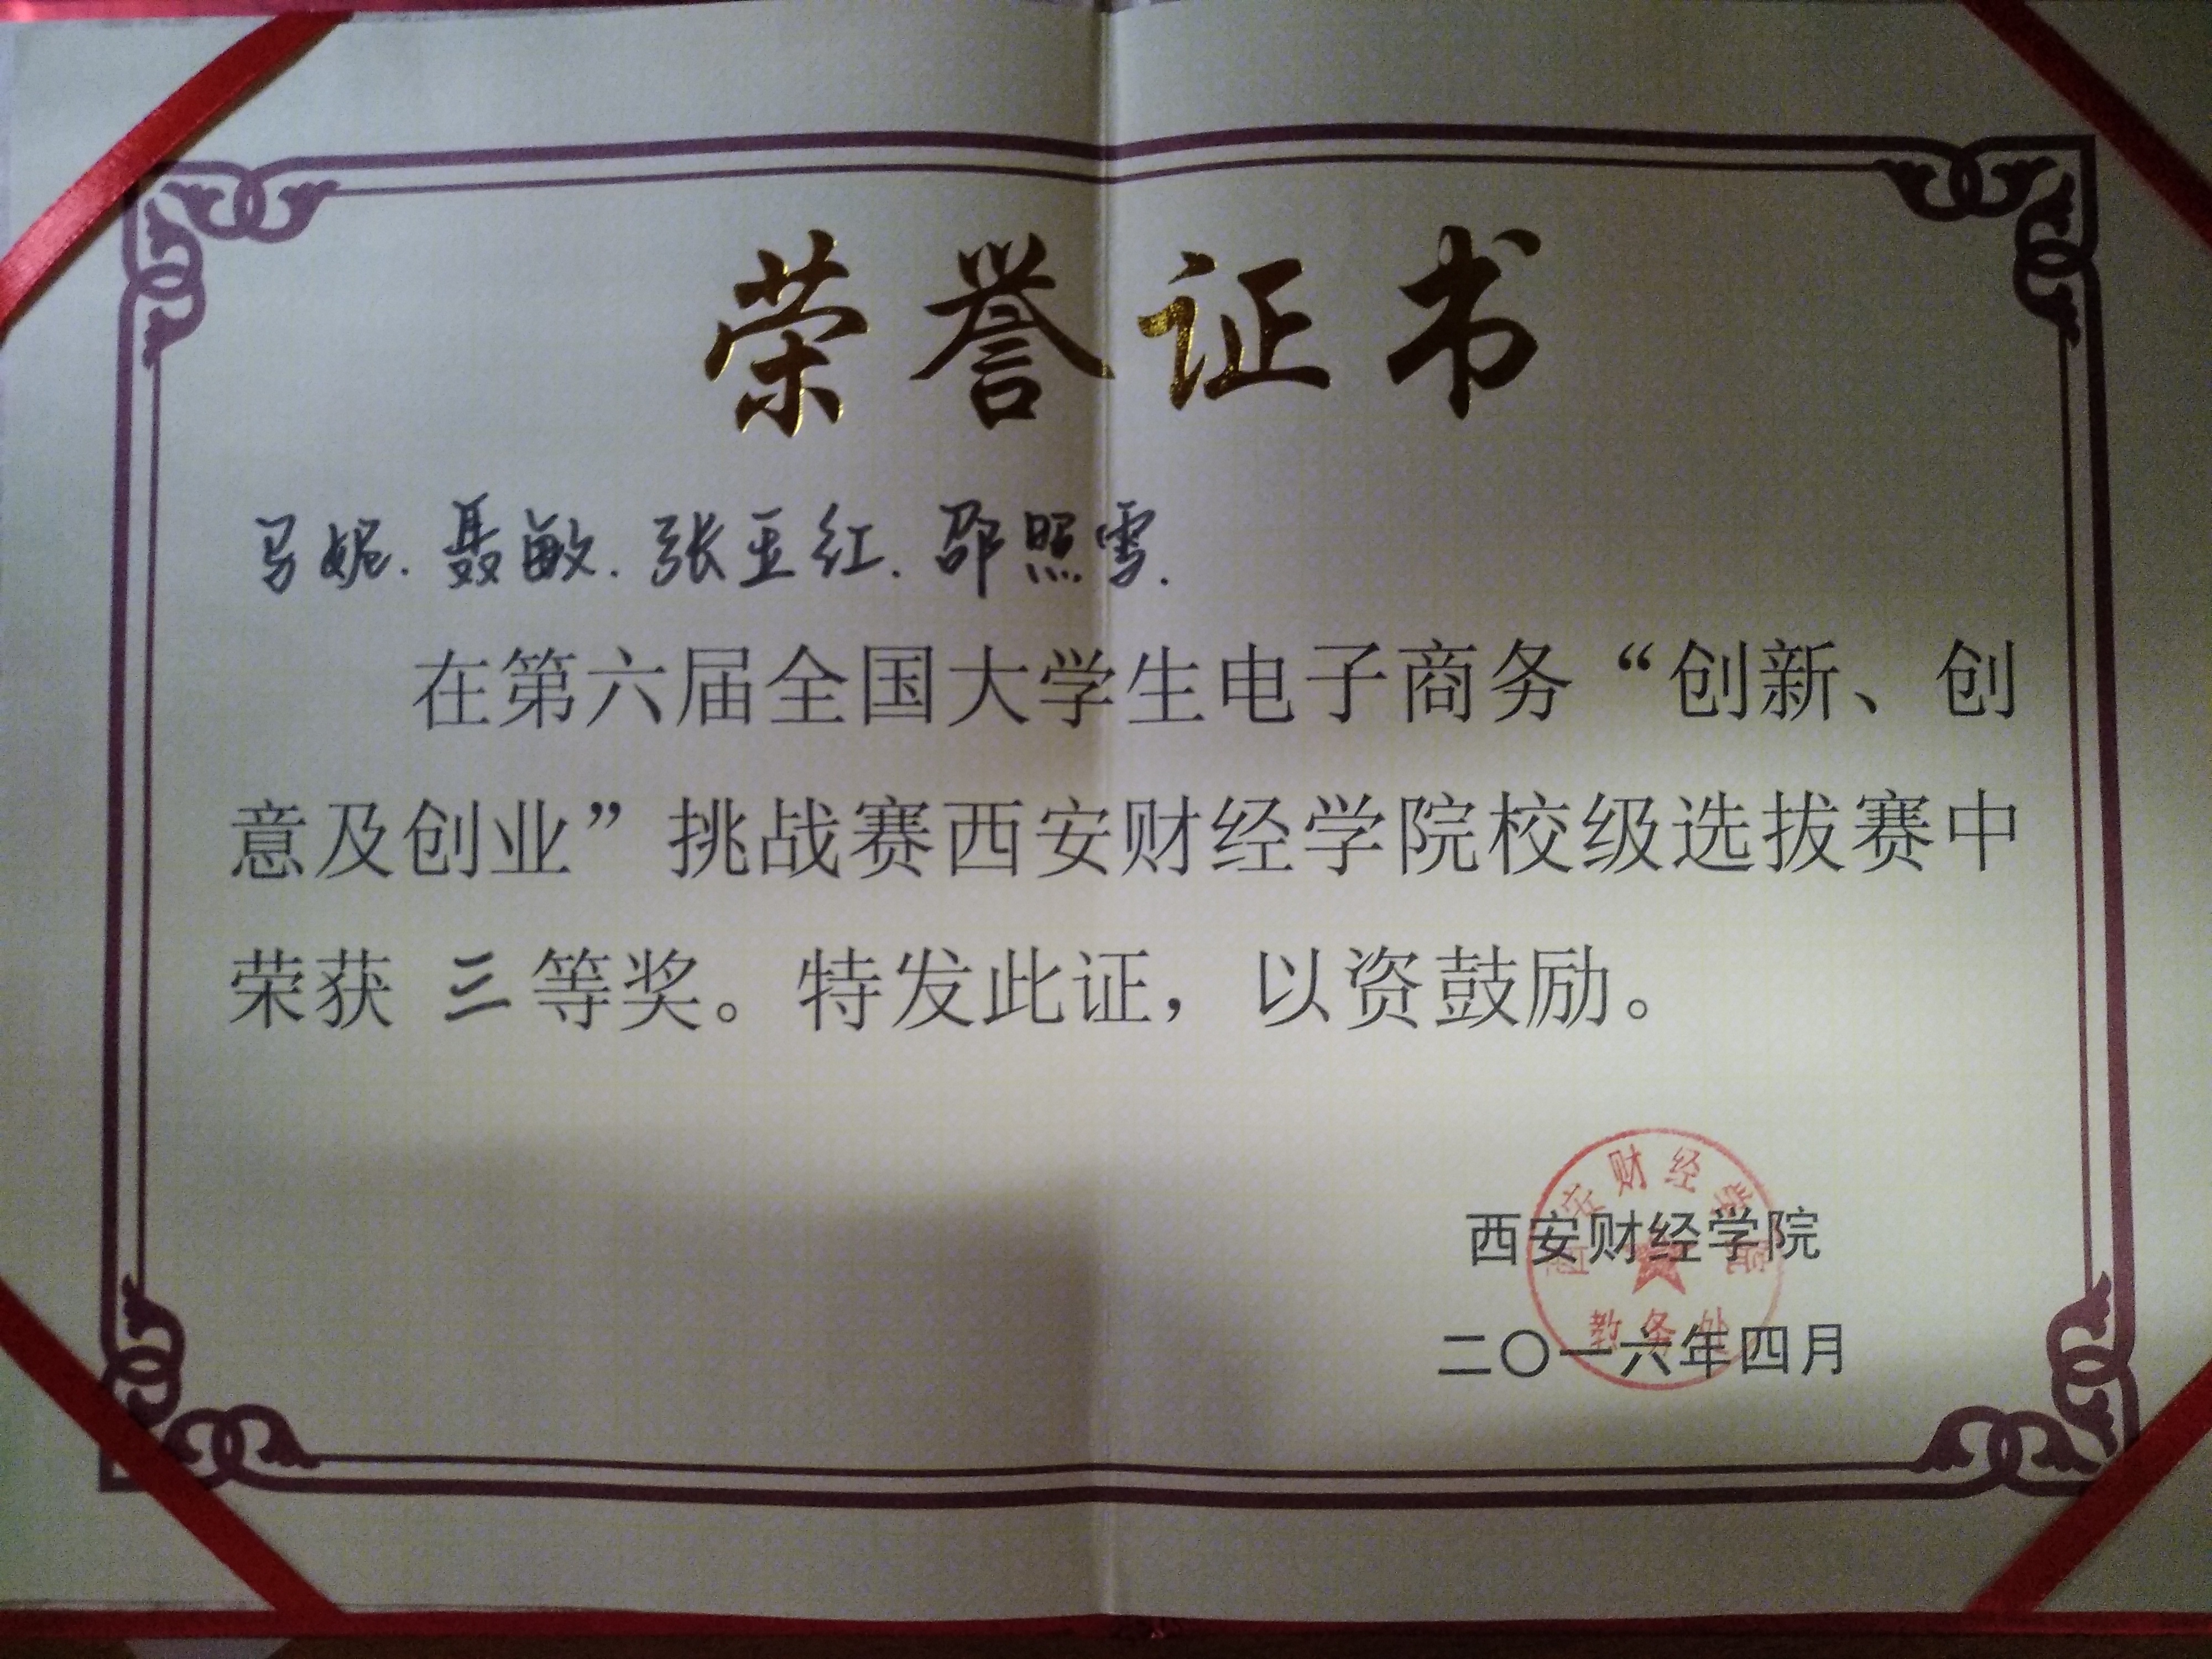 荣誉证书
马妮.聂敏.张亚红.邵照雪.
在第六届全国大学生电子商务“创新、创
意及创业”挑战赛西安财经学院校级选拔赛中
荣获 三等奖。特发此证，以资鼓励。
西安财经学院
西安财经学院
教务处
二〇一六年四月